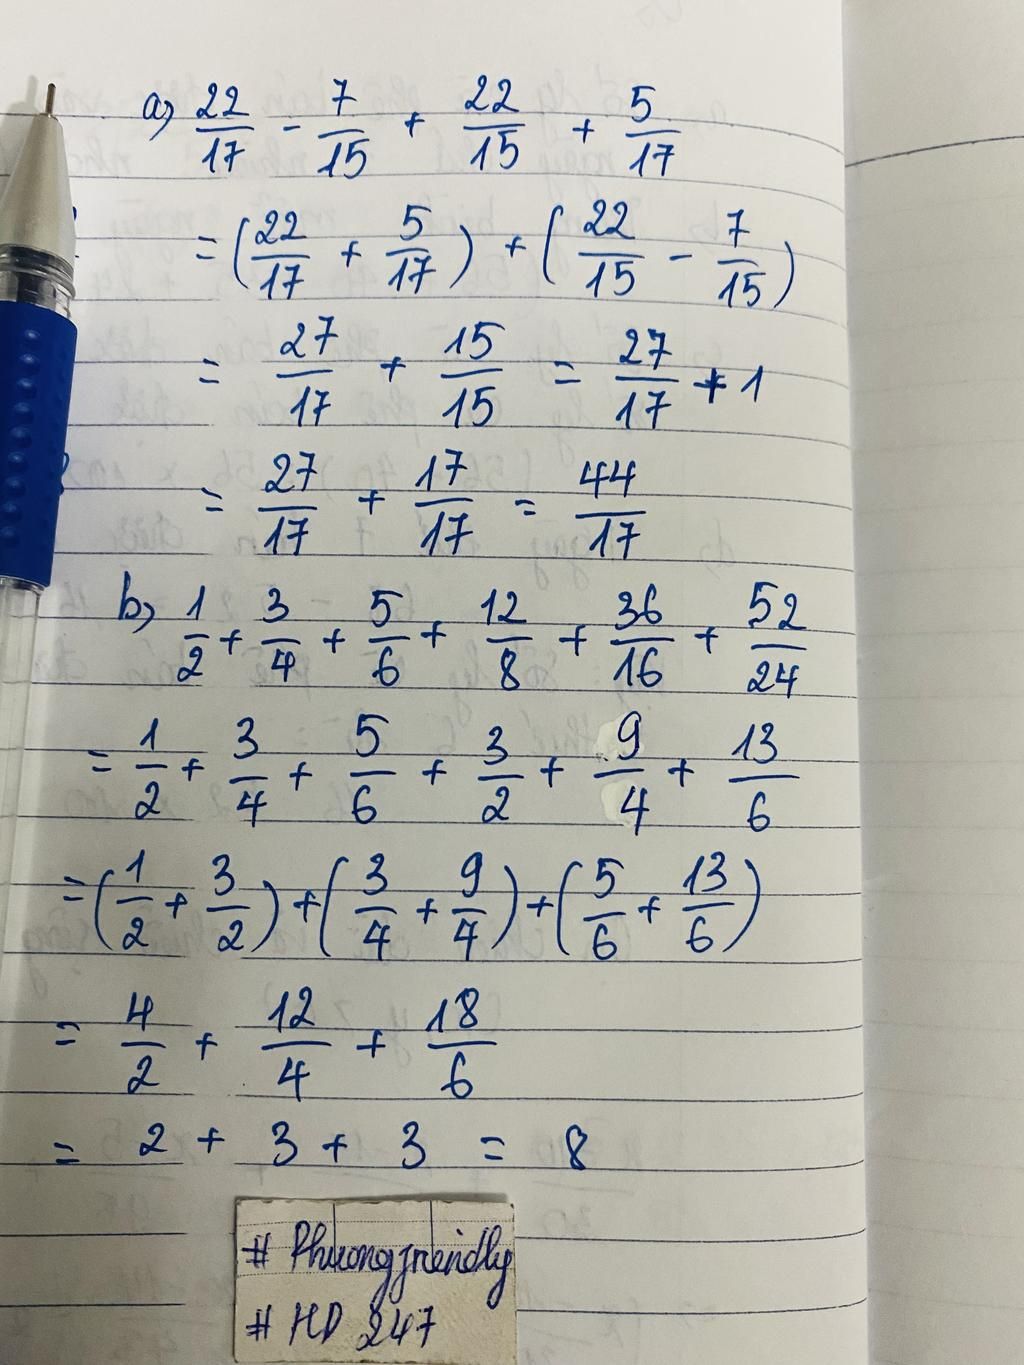 a) 22/17 - 7/15 + 22/15 + 5/17
= (22/17 + 5/17) + (22/15 - 7/15)
= 27/17 + 15/15 = 27/17 + 1
= 27/17 + 17/17 = 44/17
b) 1/2 + 3/4 + 5/6 + 12/8 + 36/16 + 52/24
= 1/2 + 3/4 + 5/6 + 3/2 + 9/4 + 13/6
= (1/2 + 3/2) + (3/4 + 9/4) + (5/6 + 13/6)
= 4/2 + 12/4 + 18/6
= 2 + 3 + 3 = 8
# Phuongfriendly
# HD 247